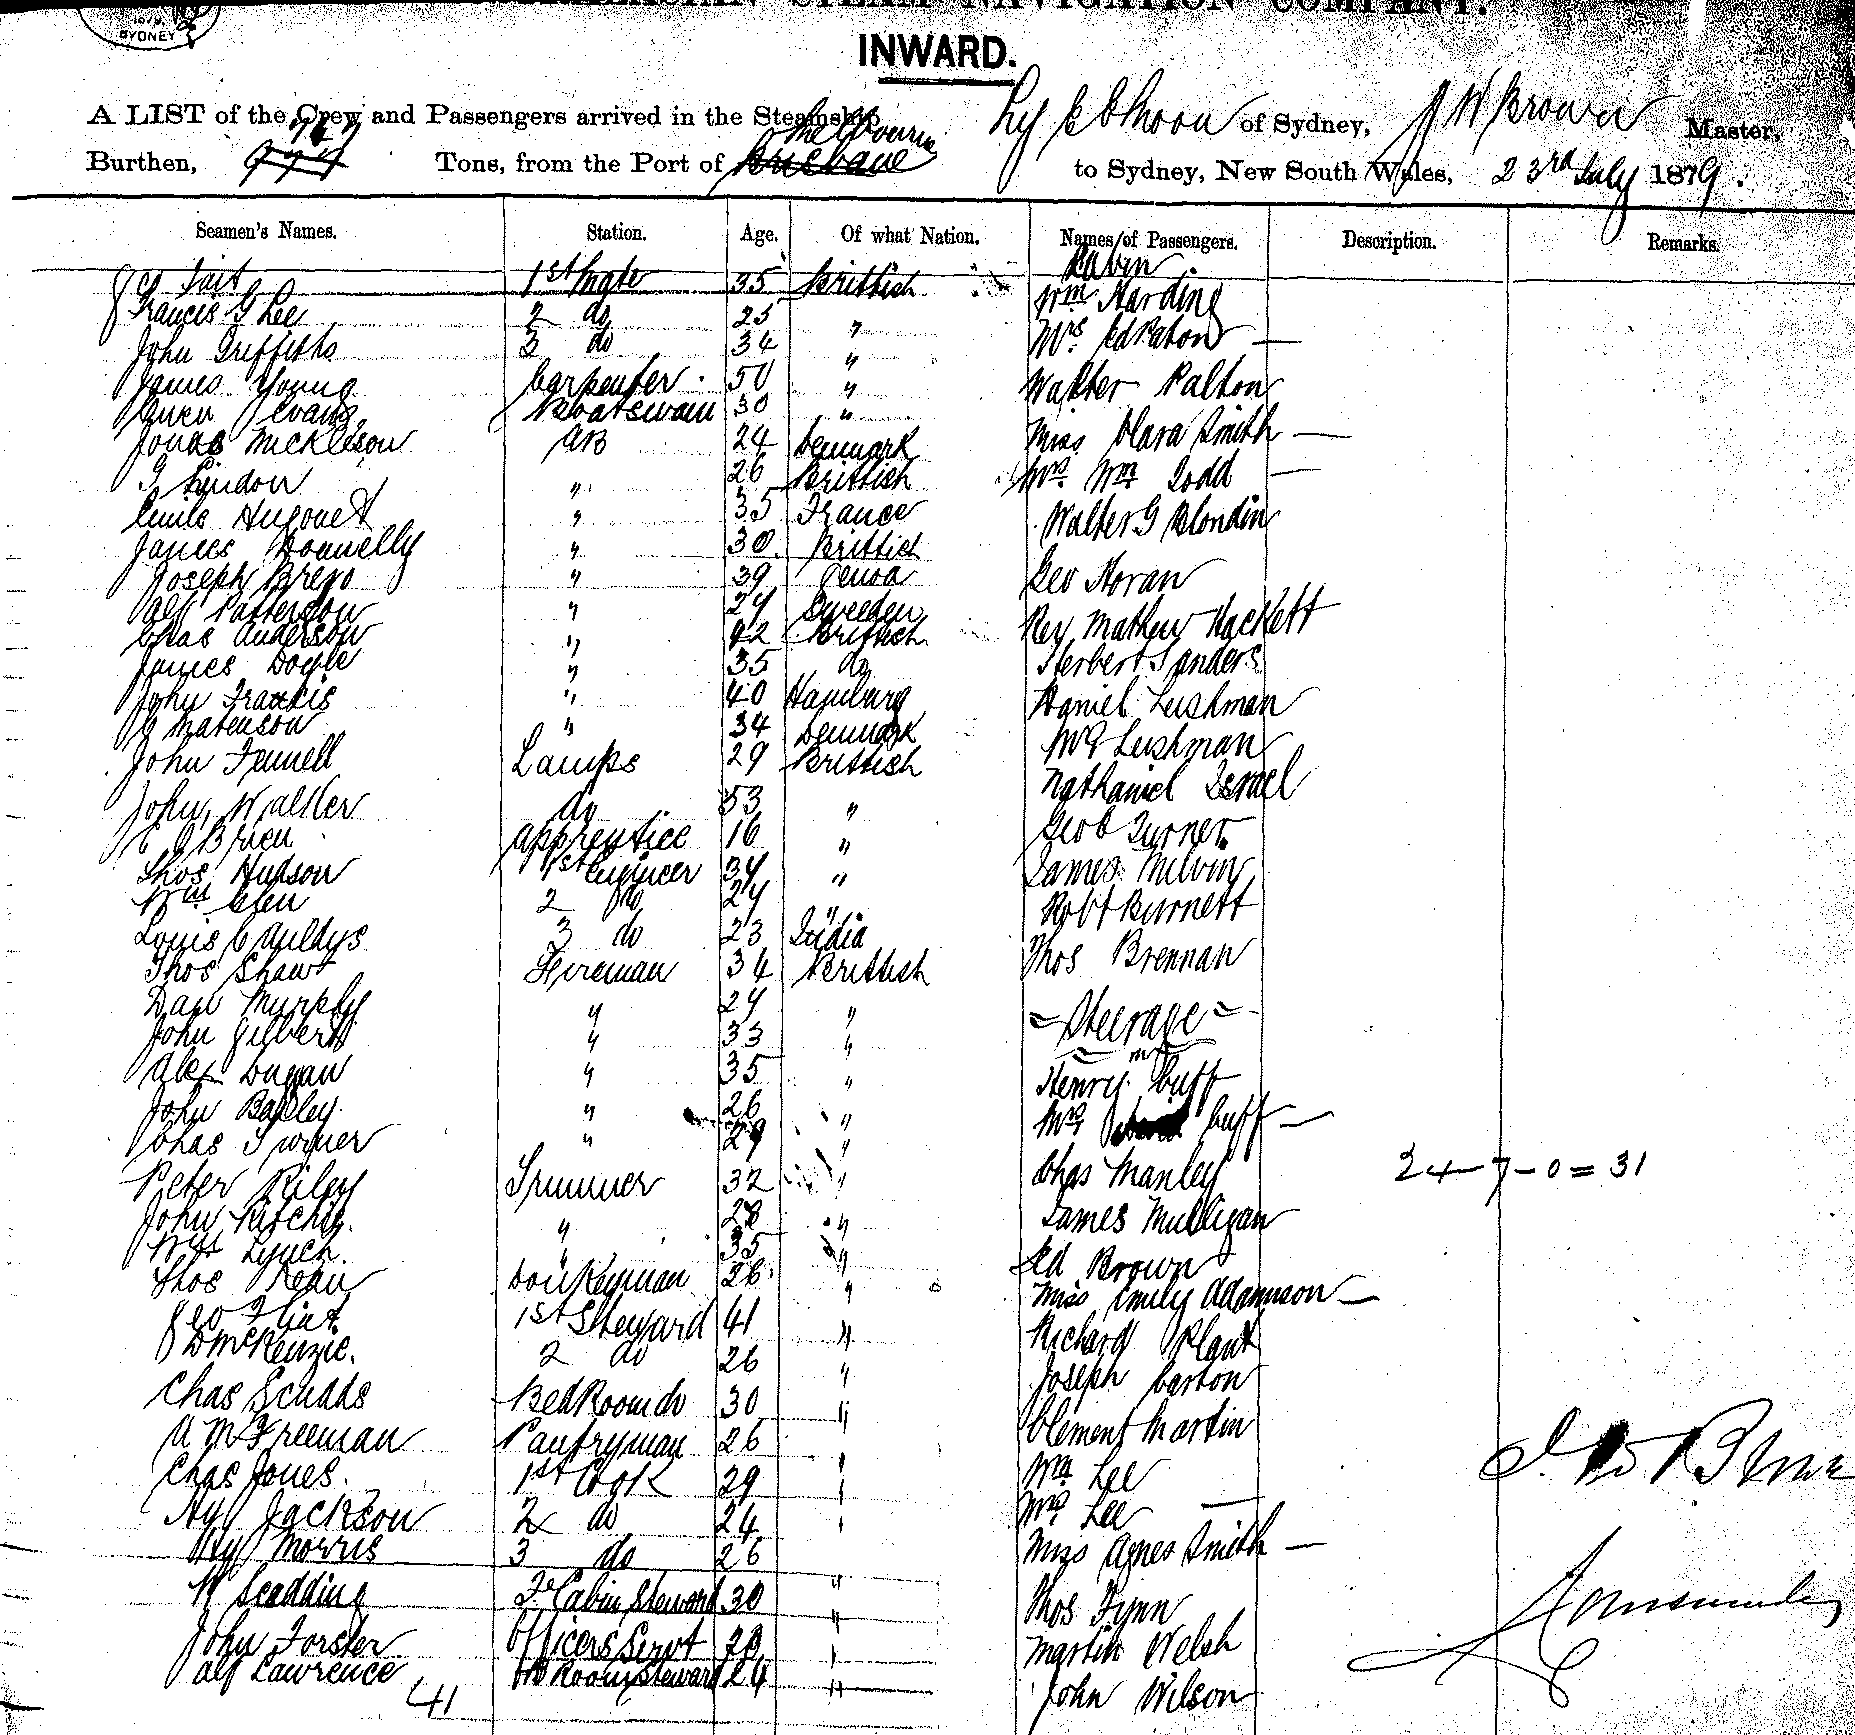 SYDNEY
STEAM NAVIGATION COMPANY.
INWARD.
A LIST of the Crew and Passengers arrived in the Steamship of Sydney, J W Brown Master,
Burthen, Tons, from the Port of Brisbane Melbourne to Sydney, New South Wales, 23rd July 1879.
Seamen's Names. Station. Age. Of what Nation. Names of Passengers. Description. Remarks
Cabin
Geo Tait 1st Mate 35 Brittish Wm Harding
Francis G Lee 2 do 25 " Mrs Ed Paton —
John Griffiths 3 do 34 "
James Young Carpenter 50 " Walter Palton
Owen Evans Boatswain 30 "
Jonas Mickleson AB 24 Denmark Miss Clara Smith —
G Lindon " 26 Brittish Mrs Wm Todd —
Emile Hugonet " 35 France Walter G Blondin
James Donnelly " 30 Brittish
Joseph Brevo " 39 Genoa Geo Horan
Alf Patterson " 24 Sweeden Rev Mathew Hackett
Chas Anderson " 42 Brittish
James Doyle " 35 do Herbert Sanders
John Francis " 40 Hamburg Daniel Leishman
Matenson " 34 Denmark Leishman
John Fennell Lamps 29 Brittish
John Walker do 53 " Nathaniel Israel
O Brien apprentice 16 " Geo C Turner
Thos Hudson 1st Engineer 34 " James Melvin
Wm Glen 2 do 24 " Robt Burnett
Louis 3 do 23 India
Thos Shaw Fireman 34 Brittish Thos Brennan
Dan Murphy " 24 "
John Gilbert " 33 " = Steerage =
Alex Dugan " 35 " Henry Cuff
John Bailey " 26 " Mrs Cuff —
Chas Twiner " 29 "
Peter Riley Trimmer 32 " Chas Manley 24 - 7 - 0 = 31
John Ritchie " 28 " James Mulligan
Wm Lynch " 35 " Ed Brown
Thos Kean Donkeyman 26 " Miss Emily Adamson —
Geo Flint 1st Steward 41 " Richard Plant
D McKenzie 2 do 26 " Joseph Carton
Chas Scudds Bed Room do 30 "
A M Freeman Pantryman 26 " Clement Martin
Chas Jones 1st Cook 29 " Wm Lee
Hy Jackson 2 do 24 " Mrs Lee —
Hy Morris 3 do 26 Miss Agnes Smith —
W Scadding Cabin Steward 30 " Thos Fynn
John Forster Officers Servt 28 " Martin Welsh
Alf Lawrence Room Steward 24 " John Wilson
41